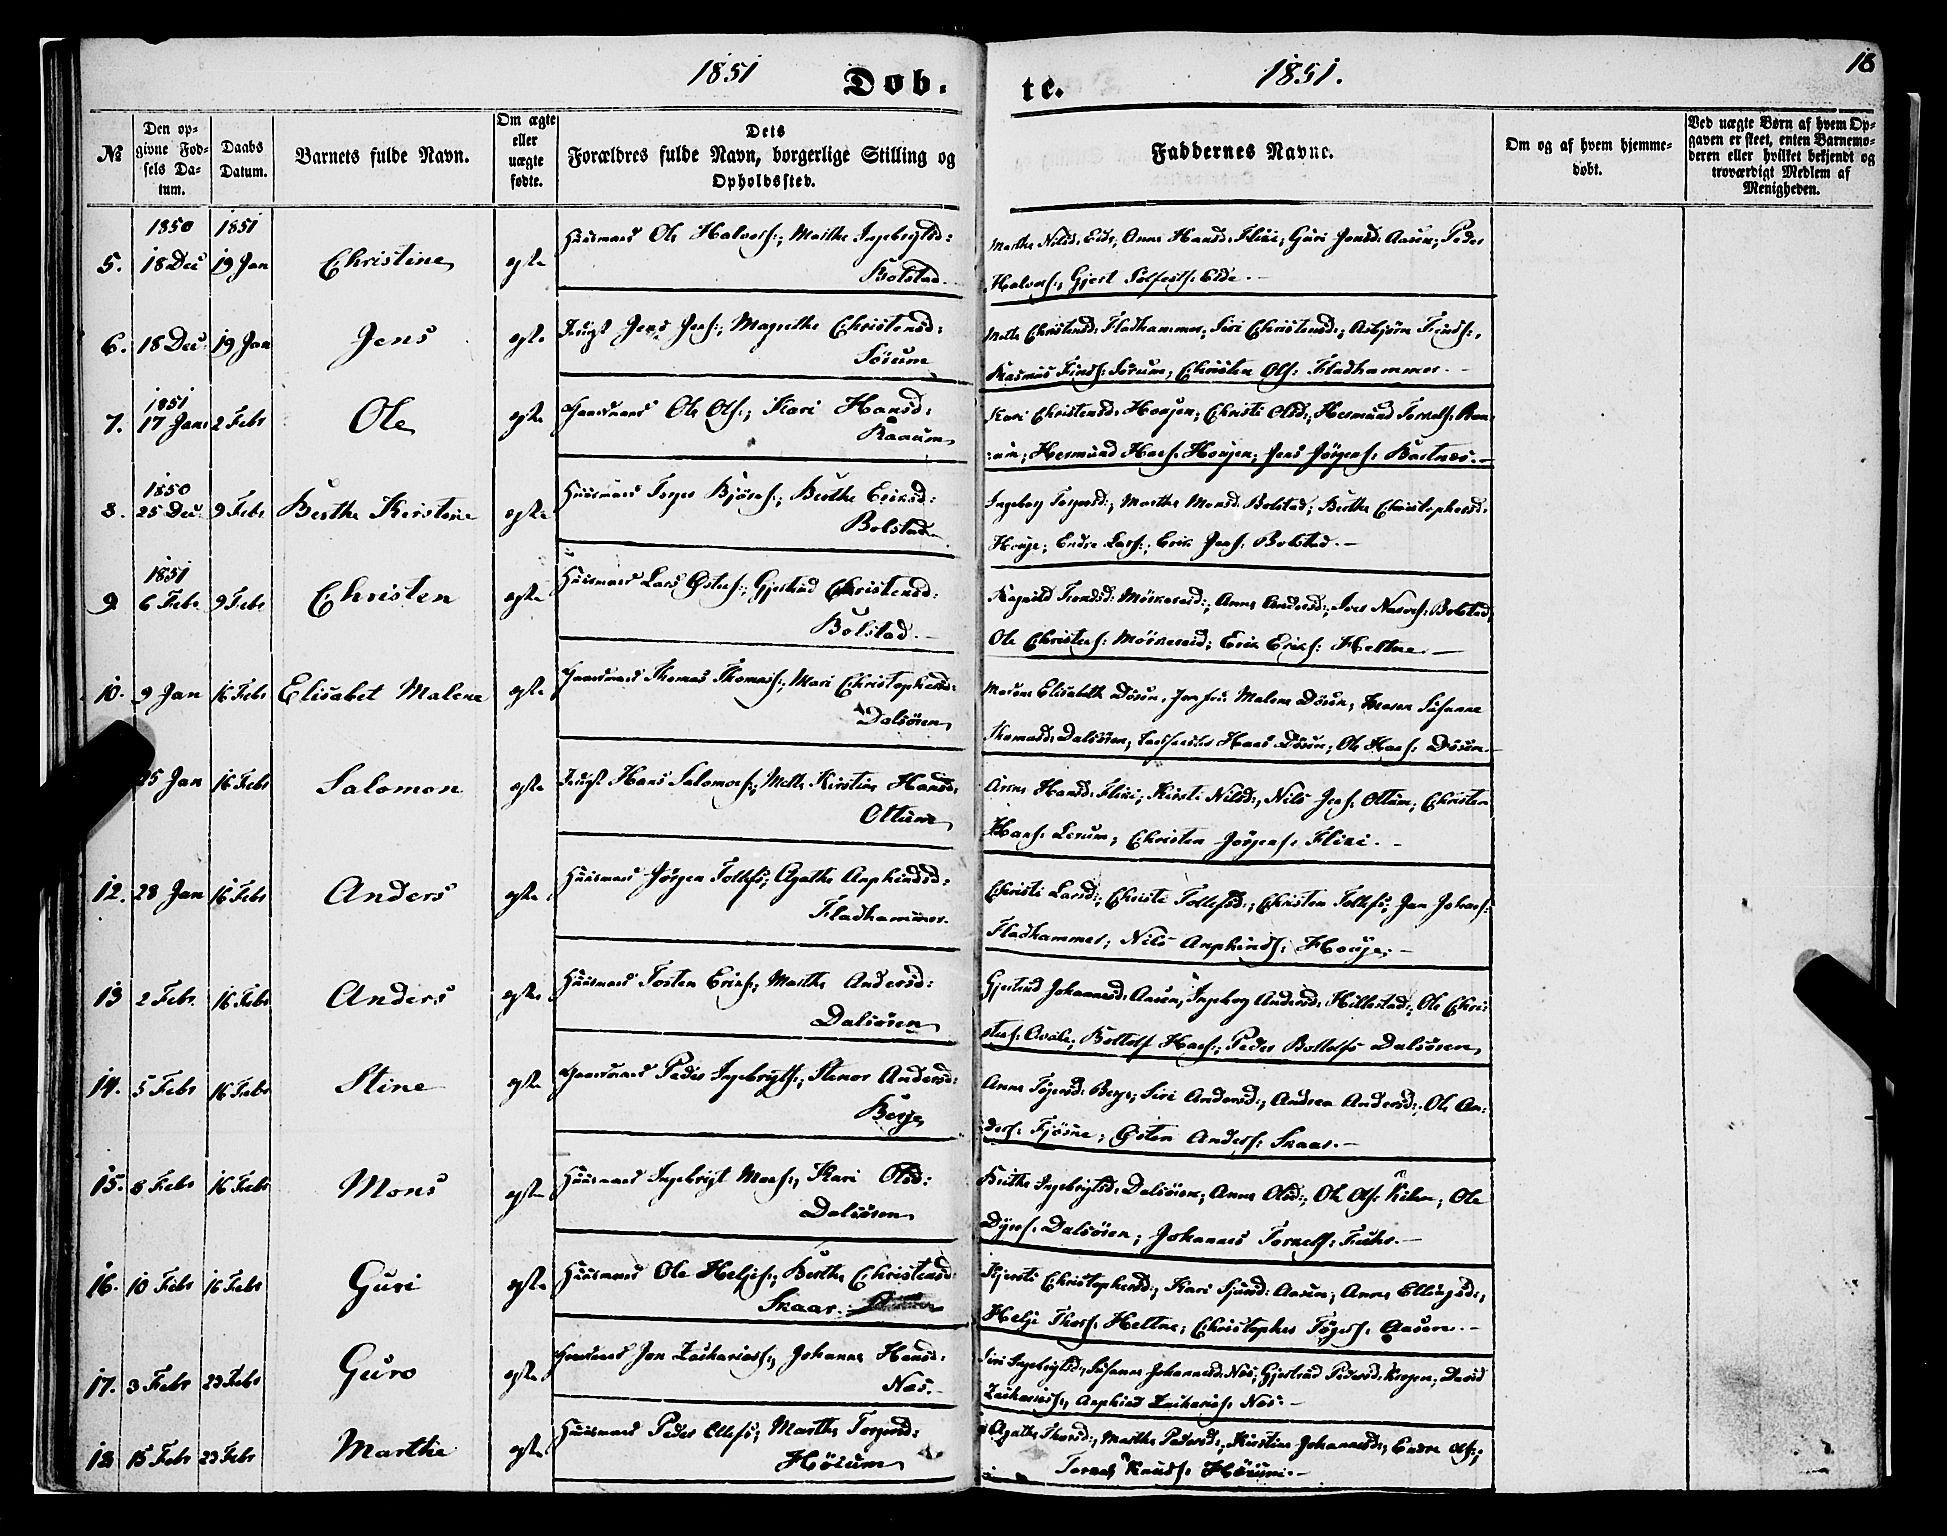 1851 Døb.
te. 1851. 18
№
Den op-
givne Fød-
sels Da-
tum.
Daabs
Datum.
Barnets fulde Navn.
Om ægte
eller
uægte
fødte.
Dets
Forældres fulde Navn, borgerlige Stilling og
Opholdssted.
Faddernes Navne.
Om og af hvem hjemme-
døbt.
Ved uægte Børn af hvem Op-
gaven er skeet, enten Barnemo-
deren eller hvilket bekjendt og
troværdigt Medlem af
Menigheden.
1850 1851
5. 18 Dec 19 Jan Christine egte Huusmand Ole Halvors:, Marthe Ingebrigtsd:
Bolstad.
Marthe Nilsd: Eide, Anna Hansd: Flize, Guri Jensd: Aasen, Peder
Halvors:, Gjert Eide.
6. 18 Dec 19 Jan Jens egte Jens Jens:, Magrethe Christensd:
Sørum
Mette Christensd: Fladhammer, Siri Christensd:, Asbjørn Finds:,
Rasmus Finds: Sørum, Christen Ols: Fladhammer.
1851
7. 17 Jan 2 Febr Ole egte Gaardmand Ole Ols:, Kari Hansd:
Raaum
Kari Christensd: Hougen, Christi Olsd:, Hermund
Hermund Hans: Hougen, Jens Jørgens:
1850
8. 25 Dec 9 Febr Berthe Kirstine egte Huusmand Torger Bjørns:, Berthe Eriksd:
Bolstad
Ingeborg Torgersd:, Marthe Monsd: Bolstad, Berthe Christophersd:
Houge, Endre Lars:, Erik Jens: Bolstad.
1851
9 6 Febr 9 Febr Christen egte Huusmand Lars Østens:, Gjertrud Christensd:
Bolstad.
Ragnild Trondsd: Anna Andersd:, Bolstad,
Ole Christens: Erik Eriks: Heltne
10. 9 Jan 16 Febr Elisabet Malene egte Gaardmand Thomas Thomas:, Mari Christophersd:
Dalsøren
Madame Elisabeth Døsen, Jomfru Malene Døsen, Susanne
Thomasd: Dalsøren, Hans Døsen, Ole Hans: Døsen
25 Jan 16 Febr Salomon egte Hans Salomons:, Mette Kirstine Hansd:
Ottum
Anna Hansd: Flize, Kirsti Nilsd:, Nils Jens: Ottum, Christen
Hans: Lerum, Christen Jørgens: Flize.
12. 28 Jan 16 Febr Anders egte Huusmand Jørgen Tollefs:, Agathe Anphindsd:
Fladhammer.
Christi Larsd:, Christi Tollefsd:, Christen Tollefs:, Jan Johans:
Fladhammer, Nils Anphinds: Houge.
13 2 Febr 16 Febr Anders egte Huusmand Torsten Eriks:, Marthe Andersd:
Dalsøren
Gjertrud Johannesd: Aasen, Ingeborg Andersd: Hillestad, Ole Chri-
stens: Bottolf Hans:, Peder Bottolfs: Dalsøren
14. 5 Febr 16 Febr Stine egte Gaardmand Peder Ingebrigts:, Andersd:
Berge
Anna Berge, Siri Andersd:, Andrea Andersd:, Ole An-
ders: Fjøsne, Østen Anders: Skaar.
15. 8 Febr 16 Febr Mons egte Huusmand Ingebrigt Mons:, Kari Olsd:
Dalsøren
Berthe Ingebrigtsd: Dalsøren, Anna Olsd:, Ole Ols: Kilen, Ole
Dalsøren, Johannes
16. 10 Febr 16 Febr Guri egte Huusmand Ole Helges:, Berthe Christensd:
Skaar.
Kjersti Christophersd:, Kari Aasen, Anna Ellingsd:,
Helge Thors: Heltne, Christopher Aasen.
17. 3 Febr 23 Febr Guro egte Gaardmand Jon Zacharias:, Johanna Hansd:
Næs.
Siri Ingebrigtsd:, Susanna Johannesd: Næs, Gjertrud Pedersd: David
Zacharias:, Anphind Zacharias: Næs.
18 15 Febr 23 Febr Marthe egte Huusmand Peder Marthe Torgersd:
Høium
Agathe Thorsd:, Marthe Pedersd:, Kirstine Johannesd:, Endre Ols:,
Knuds: Høium.